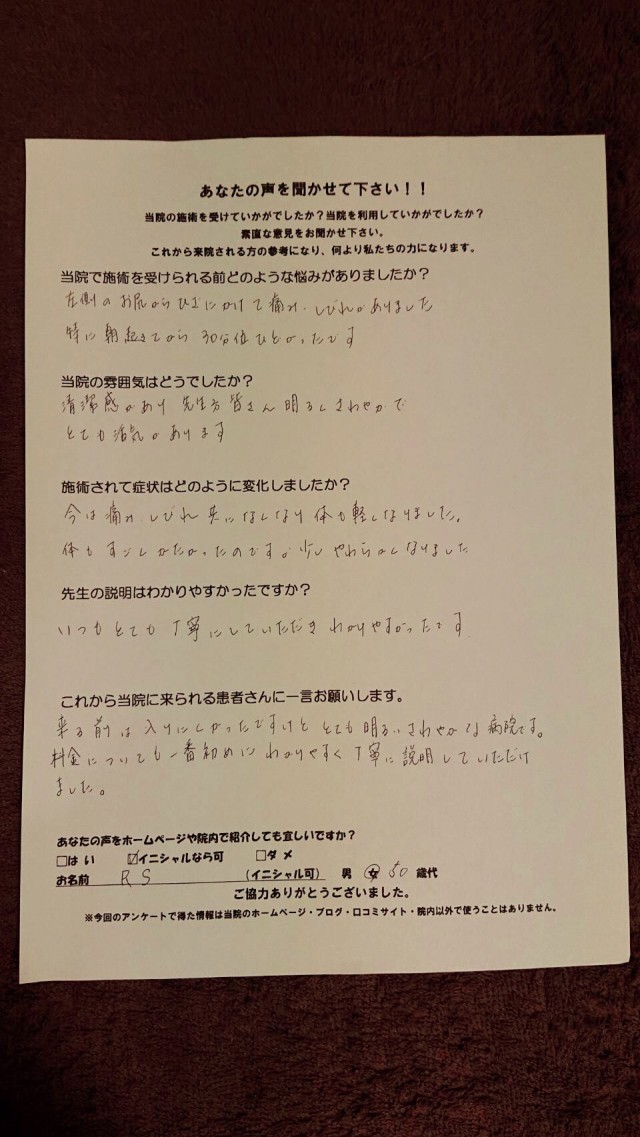 あなたの声を聞かせて下さい！！
当院の施術を受けていかがでしたか？当院を利用していかがでしたか？
素直な意見をお聞かせ下さい。
これから来院される方の参考になり、何より私たちの力になります。
当院で施術を受けられる前どのような悩みがありましたか？
左側のお尻からひざにかけて痛み、しびれがありました
特に朝起きてから 30分位ひどかったです
当院の雰囲気はどうでしたか？
清潔感があり 先生方皆さん 明るくさわやかで
とても活気があります
施術されて症状はどのように変化しましたか？
今は痛み、しびれ 共になくなり 体も軽くなりました。
体もすごくかたかったのです。少しやわらかくなりました
先生の説明はわかりやすかったですか？
いつもとても丁寧にしていただき わかりやすかったです
これから当院に来られる患者さんに一言お願いします。
来る前は入りにくかったですけど とても明るいさわやかな病院です。
料金についても一番初めに わかりやすく丁寧に説明していただけ
ました。
あなたの声をホームページや院内で紹介しても宜しいですか？
□はい ☑イニシャルなら可 □ダメ
お名前 R S （イニシャル可） 男 女 50 歳代
ご協力ありがとうございました。
※今回のアンケートで得た情報は当院のホームページ・ブログ・口コミサイト・院内以外で使うことはありません。